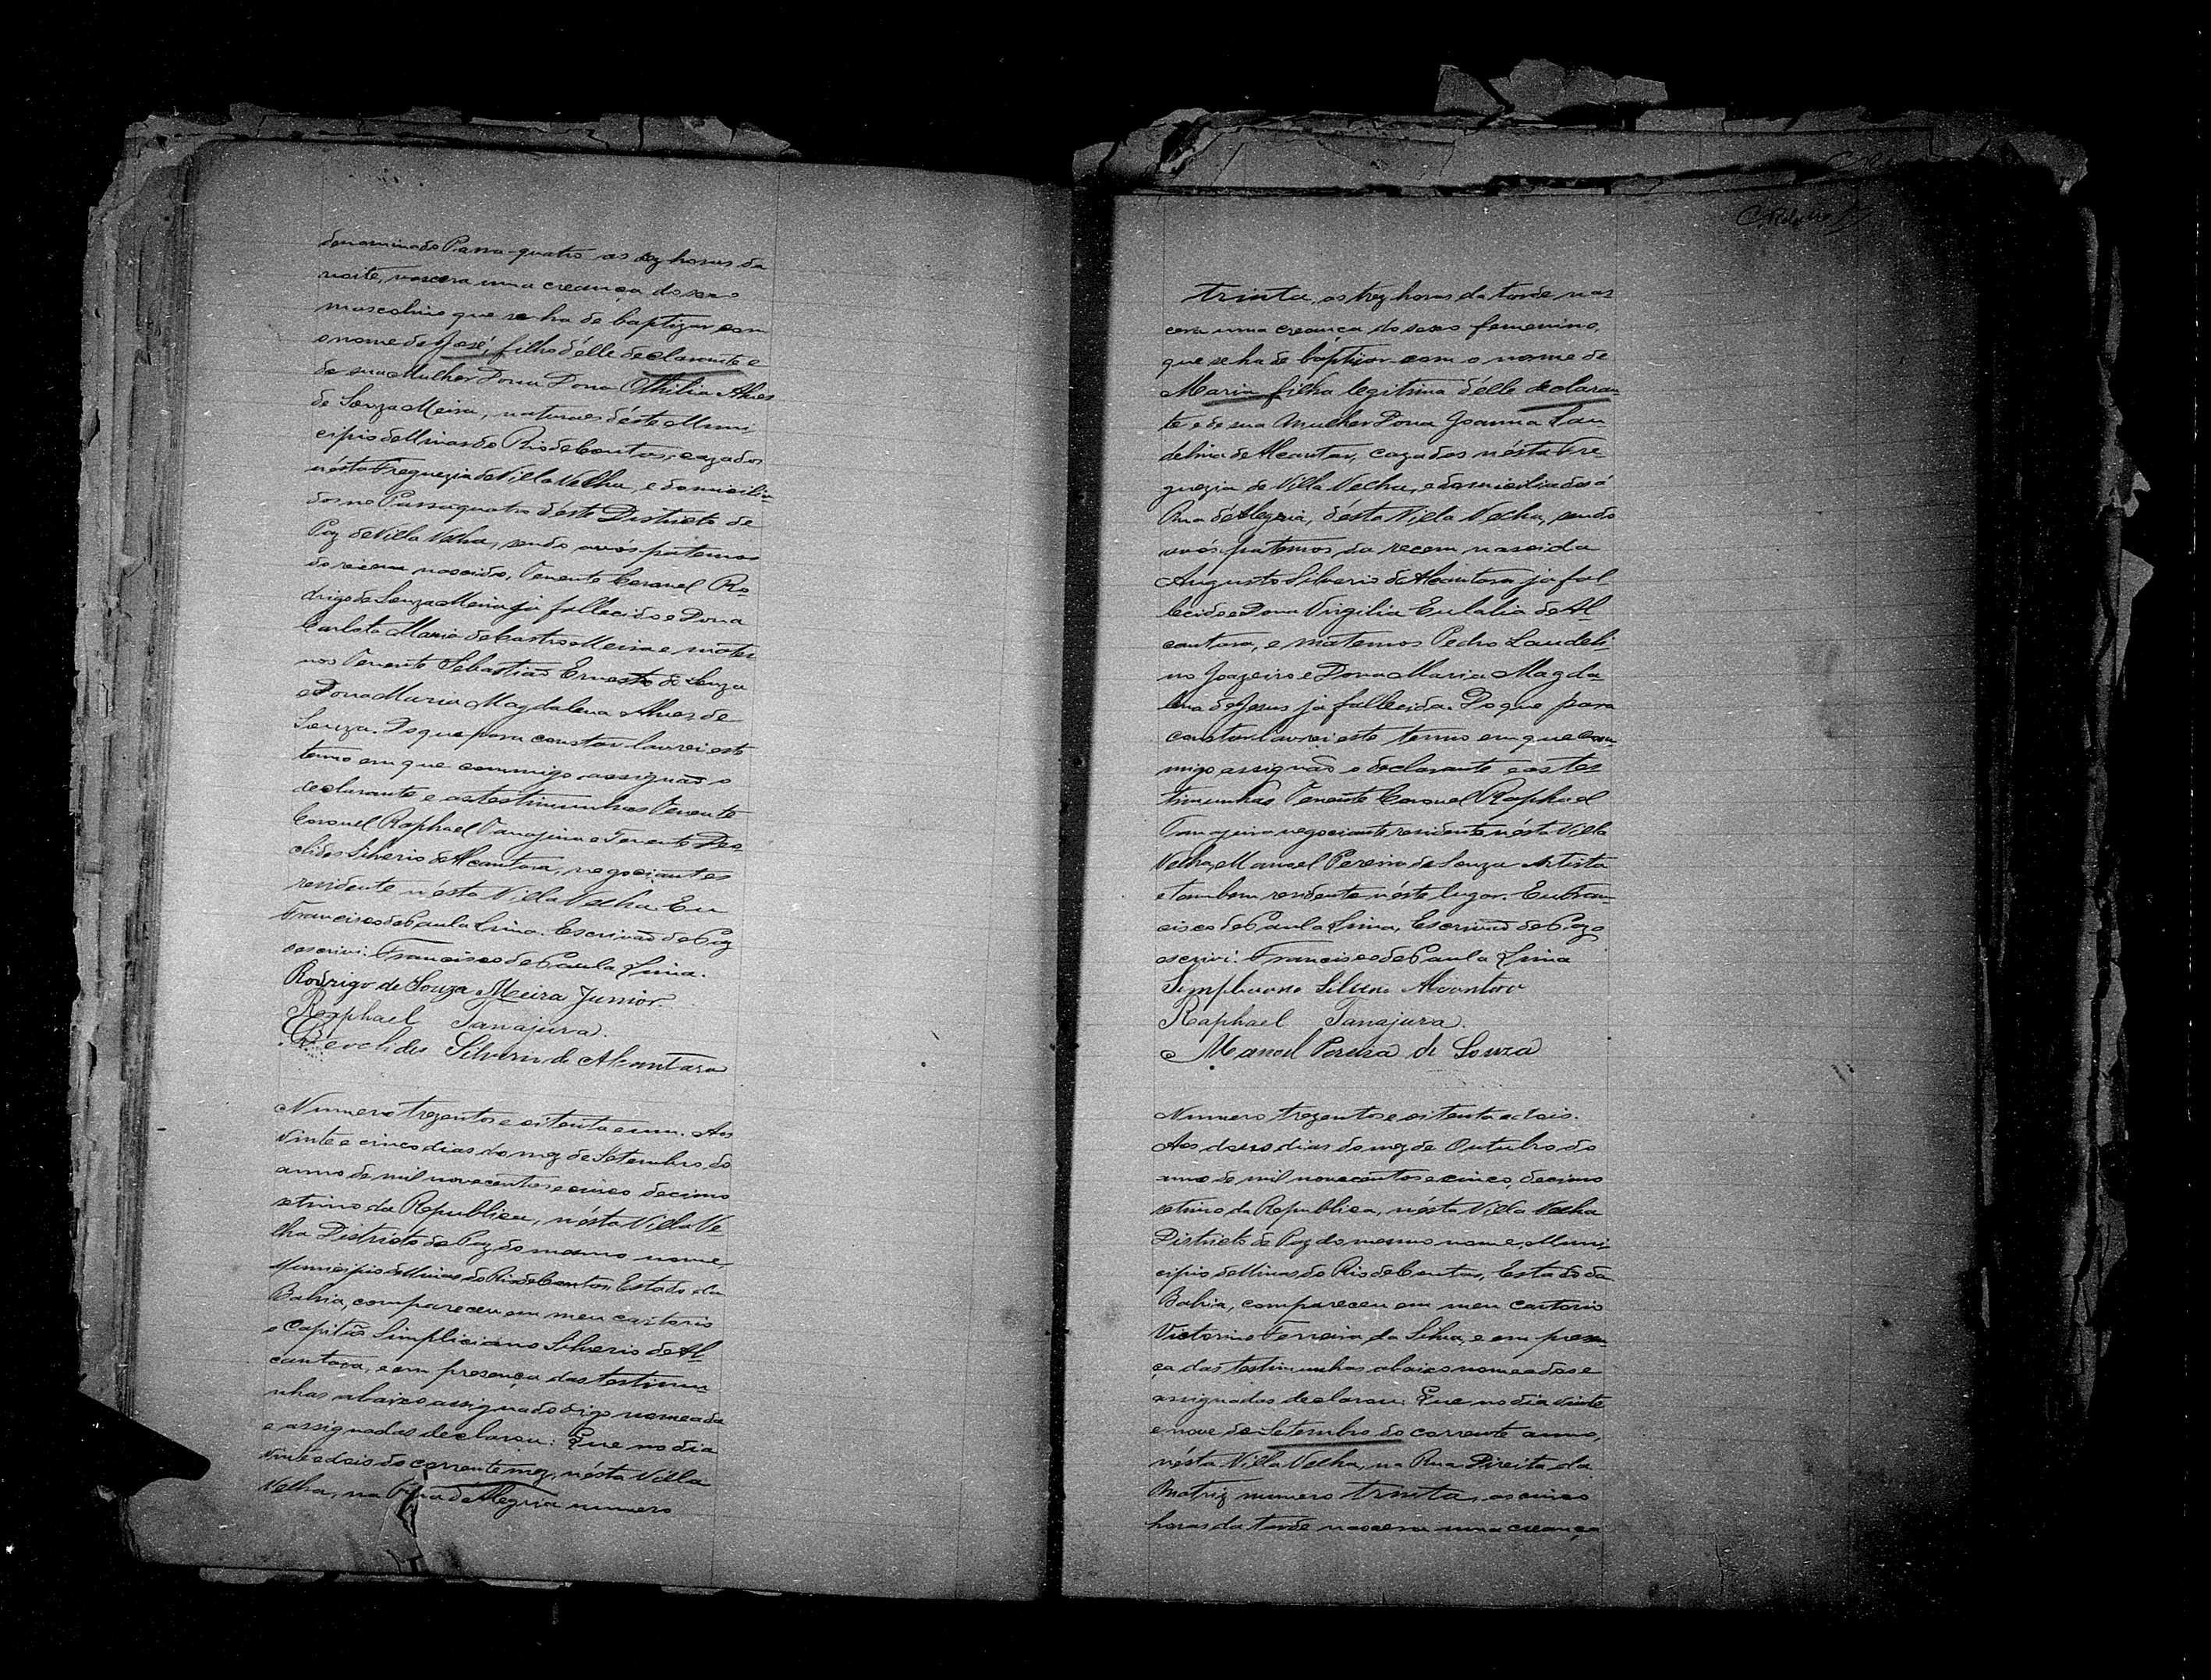 denominado Passa-quatro as dez horas da
noite, nascera uma creança do sexo
masculino que se ha de baptizar com
o nome de José, filho d'elle declarante e
de sua Mulher Dona Dona Othilia Alves
de Souza Meira, naturaes d'éste Muni-
cipio de Minas do Rio de Contas, cazados
nésta Freguezia de Villa Velha, e domicilia-
dos no Passaquatro d'éste Districto de
Paz de Villa Velha, sendo avós paternos
do récem nascido, Tenente Coronel Ro-
drigo de Souza Meira já fallecido e Dona
Carlota Maria de Castro Meira e mater-
nos Tenente Sebastião Ernesto de Souza
e Dona Maria Magdalena Alves de
Souza. Do que para constar lavrei este
termo em que commigo assignão o
declarante e as testimunhas Tenente
Coronel Raphael Tanajura e Tenente Deo-
clides Silverio de Alcantara, negociantes
residente n'ésta Villa Velha. Eu
Francisco de Paula Lima. Escrivão de Paz
o escrivi. Francisco de Paula Lima.
Rodrigo de Souza Meira Junior
Raphael Tanajura.
Deoclides Silverio de Alcantara
Numero trezentos e oitenta e um. Aos
vinte e cinco dias do mez de Setembro do
anno de mil novecentos e cinco decimo
setimo da Republica, n'ésta Villa Ve-
lha Districto de Paz do mesmo nome,
Municipio de Minas do Rio de Contas, Estado da
Bahia, compareceu em meu cartorio
o Capitão Simpliciano Silverio de Al-
cantara, e em presença das testimu-
nhas abaixo assignado digo nomeada
e assignadas declarou: Que no dia
vinte e dois do corrente mez, n'ésta Villa
Velha, na Rua da Alegria numero
trinta, as trez horas da tarde nas
cera uma creança do sexo femenino,
que se ha de baptizar com o nome de
Maria filha legitima d'élle declaran-
te e de sua Mulher Dona Joanna Lau
delina de Alcantar, cazados n'ésta Fre-
guezia de Villa Velha, e domiciliados á
Rua d'Alegria, d'ésta Villa Velha, sendo
avós paternos da recem nascida
Augusto Silverio de Alcantara já fal-
lecido e Dona Virgilia Eulalia de Al-
cantara, e maternos Pedro Laudeli-
no Joazeiro e Dona Maria Magda-
lena de Jesus já fallecida. Do que para
constar lavrei este termo em que com-
migo assignão o declarante e as tes
timunhas Tenente Coronel Raphael
Tanajura negociante residente n'ésta Villa
Velha, Manoel Pereira de Souza Artista
e tambem residente n'éste lugar. Eu Fran-
cisco de Paula Lima, Escrivão de Paz o
escrivi. Francisco de Paula Lima
Simpliciano Silverio Alcantara
Raphael Tanajura.
Manoel Pereira de Souza
Numero trezentos e oitenta e dois.
Aos dous dias do mez de Outubro do
anno de mil novecentos e cinco, decimo
setimo da Republica, n'ésta Villa Velha
Districto de Paz do mesmo nome, Muni-
cipio de Minas do Rio de Contas, Estado da
Bahia, compareceu em meu cartorio
Victorino Ferreira da Silva, e em presen-
ça das testimunhas abaixo nomeadas e
assignadas declarou: Que no dia vinte
e nove de Setembro do corrente anno,
n'ésta Villa Velha, na Rua Direita da
Matriz numero trinta, as cinco
horas da tarde nascera uma creança